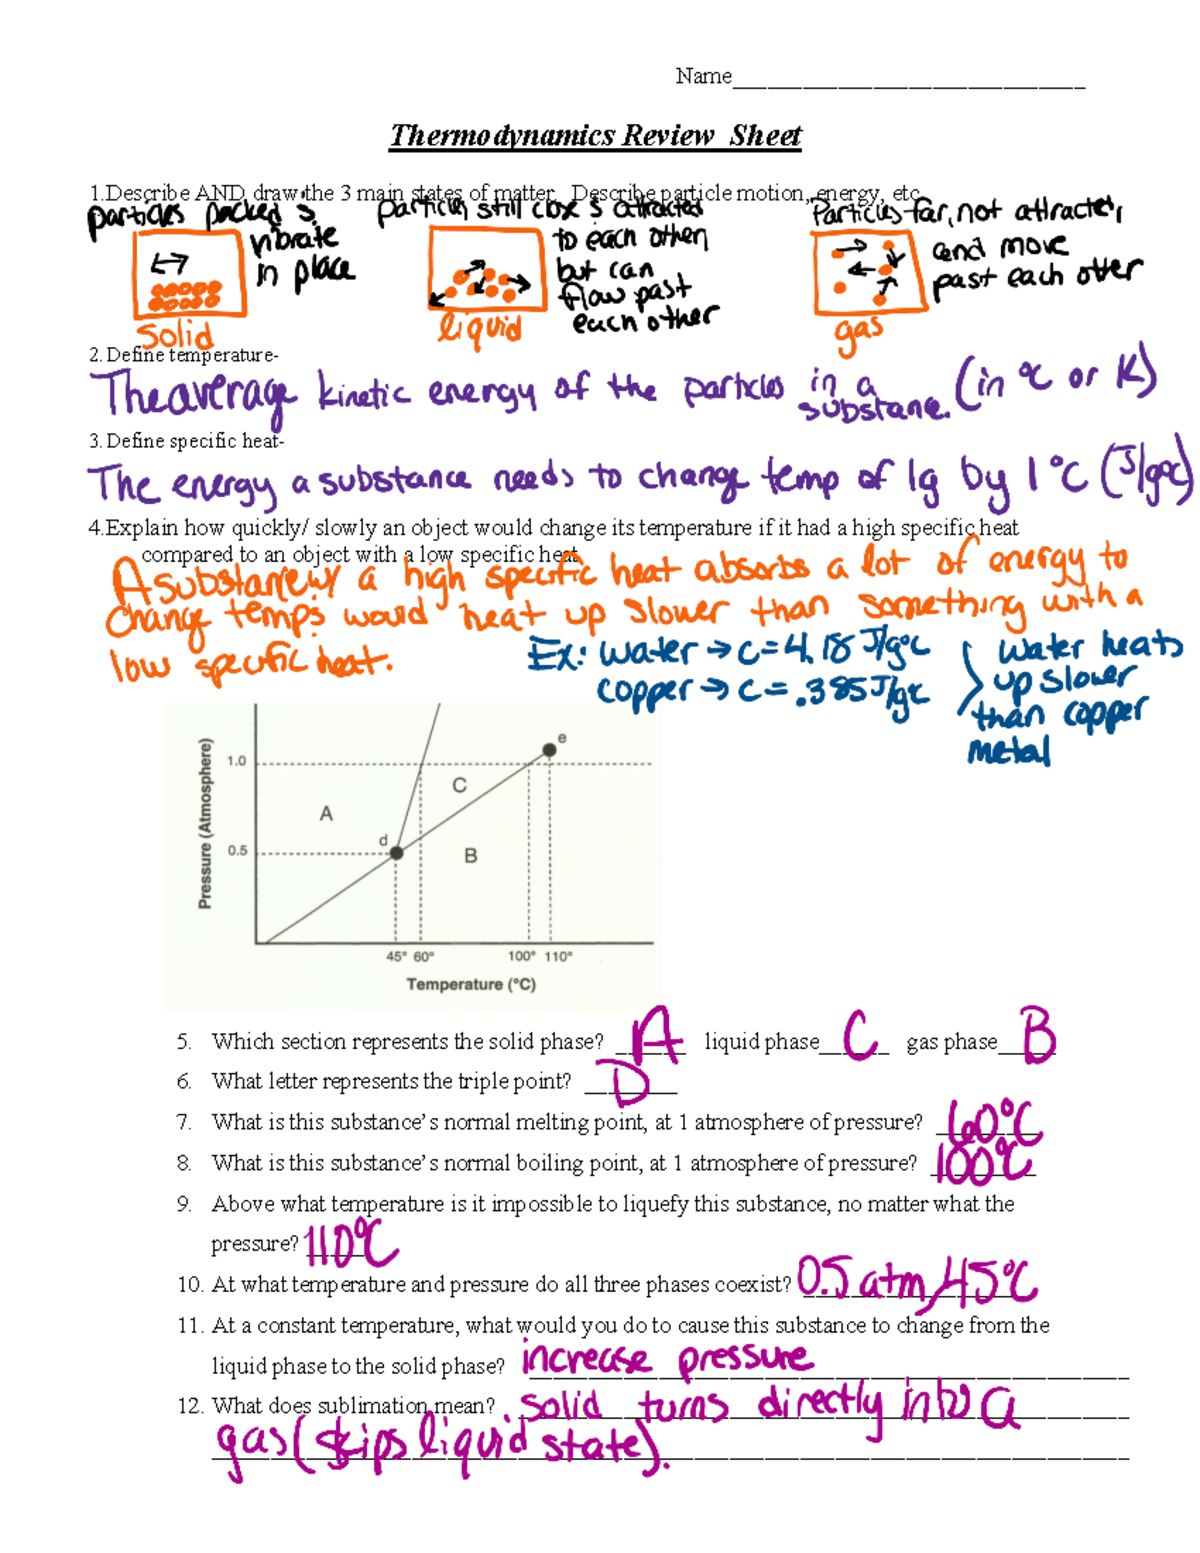 Name______________________________
Thermodynamics Review Sheet
1.Describe AND draw the 3 main states of matter. Describe particle motion, energy, etc.
particles packed & vibrate in place
solid
particles still close & attracted to each other but can flow past each other
liquid
Particles far, not attracted, and move past each other
gas
2. Define temperature-
The average kinetic energy of the particles in a substane. (in °C or K)
3. Define specific heat-
The energy a substance needs to change temp of 1g by 1°C (J/g°C)
4.Explain how quickly/ slowly an object would change its temperature if it had a high specific heat
compared to an object with a low specific heat
A substance w/ a high specific heat absorbs a lot of energy to
change temps would heat up slower than something with a
low specific heat.
Ex: water → c = 4.18 J/g°C
copper → c = .385 J/g°C
water heats
up slower
than copper
metal
Pressure (Atmosphere)
1.0
0.5
A
C
B
d
e
45° 60° 100° 110°
Temperature (°C)
5. Which section represents the solid phase? A liquid phase C gas phase B
6. What letter represents the triple point? D
7. What is this substance's normal melting point, at 1 atmosphere of pressure? 60°C
8. What is this substance's normal boiling point, at 1 atmosphere of pressure? 100°C
9. Above what temperature is it impossible to liquefy this substance, no matter what the
pressure? 110°C
10. At what temperature and pressure do all three phases coexist? 0.5 atm, 45°C
11. At a constant temperature, what would you do to cause this substance to change from the
liquid phase to the solid phase? increase pressure
12. What does sublimation mean? solid turns directly into a
gas (skips liquid state).